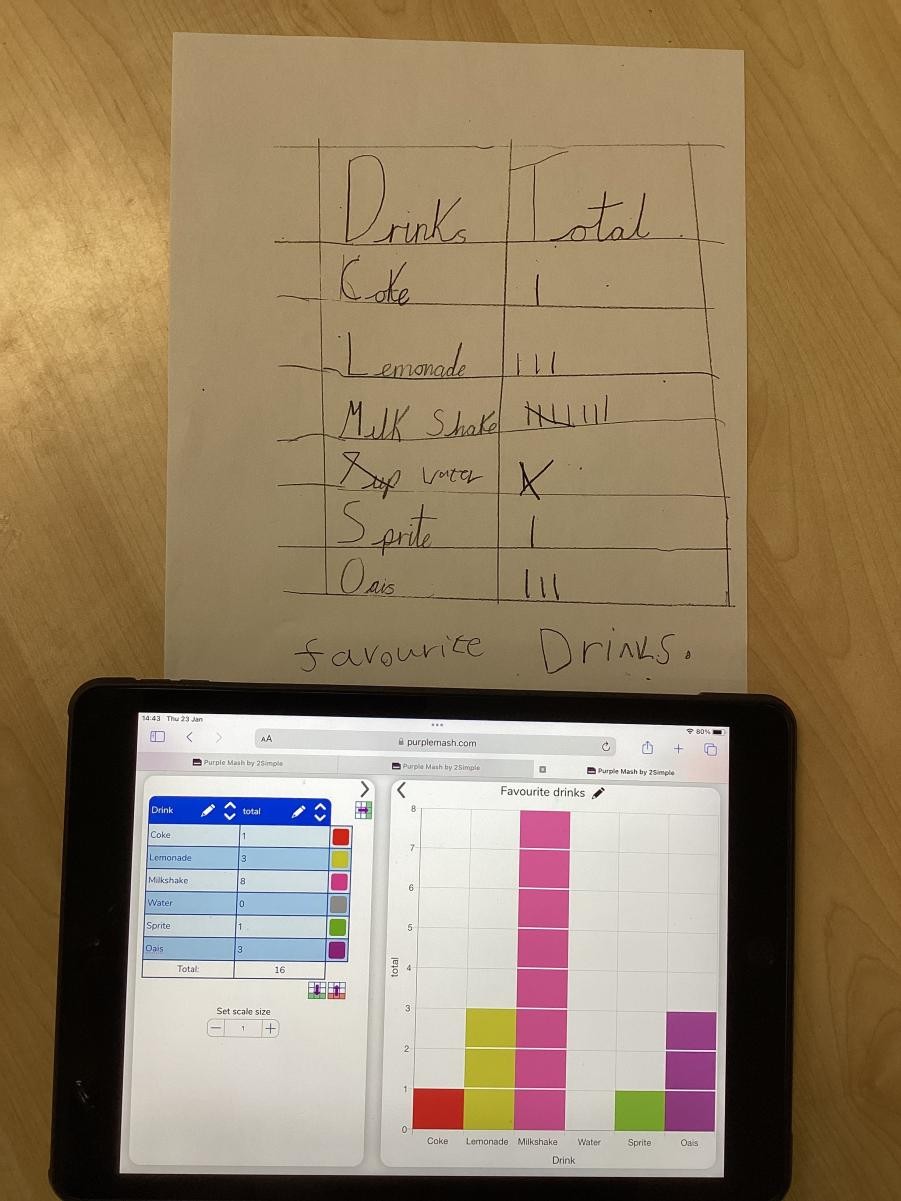 Drinks Total
Coke
Lemonade
Milk Shake
water
Sprite
Oais
favourite Drinks.
14:43 Thu 23 Jan
80%
AA purplemash.com
Purple Mash by 2Simple
Purple Mash by 2Simple
Purple Mash by 2Simple
Drink total
Coke 1
Lemonade 3
Milkshake 8
Water 0
Sprite 1
Oais 3
Total: 16
Set scale size
1
Favourite drinks
8
7
6
5
4
3
2
1
0
total
Coke Lemonade Milkshake Water Sprite Oais
Drink